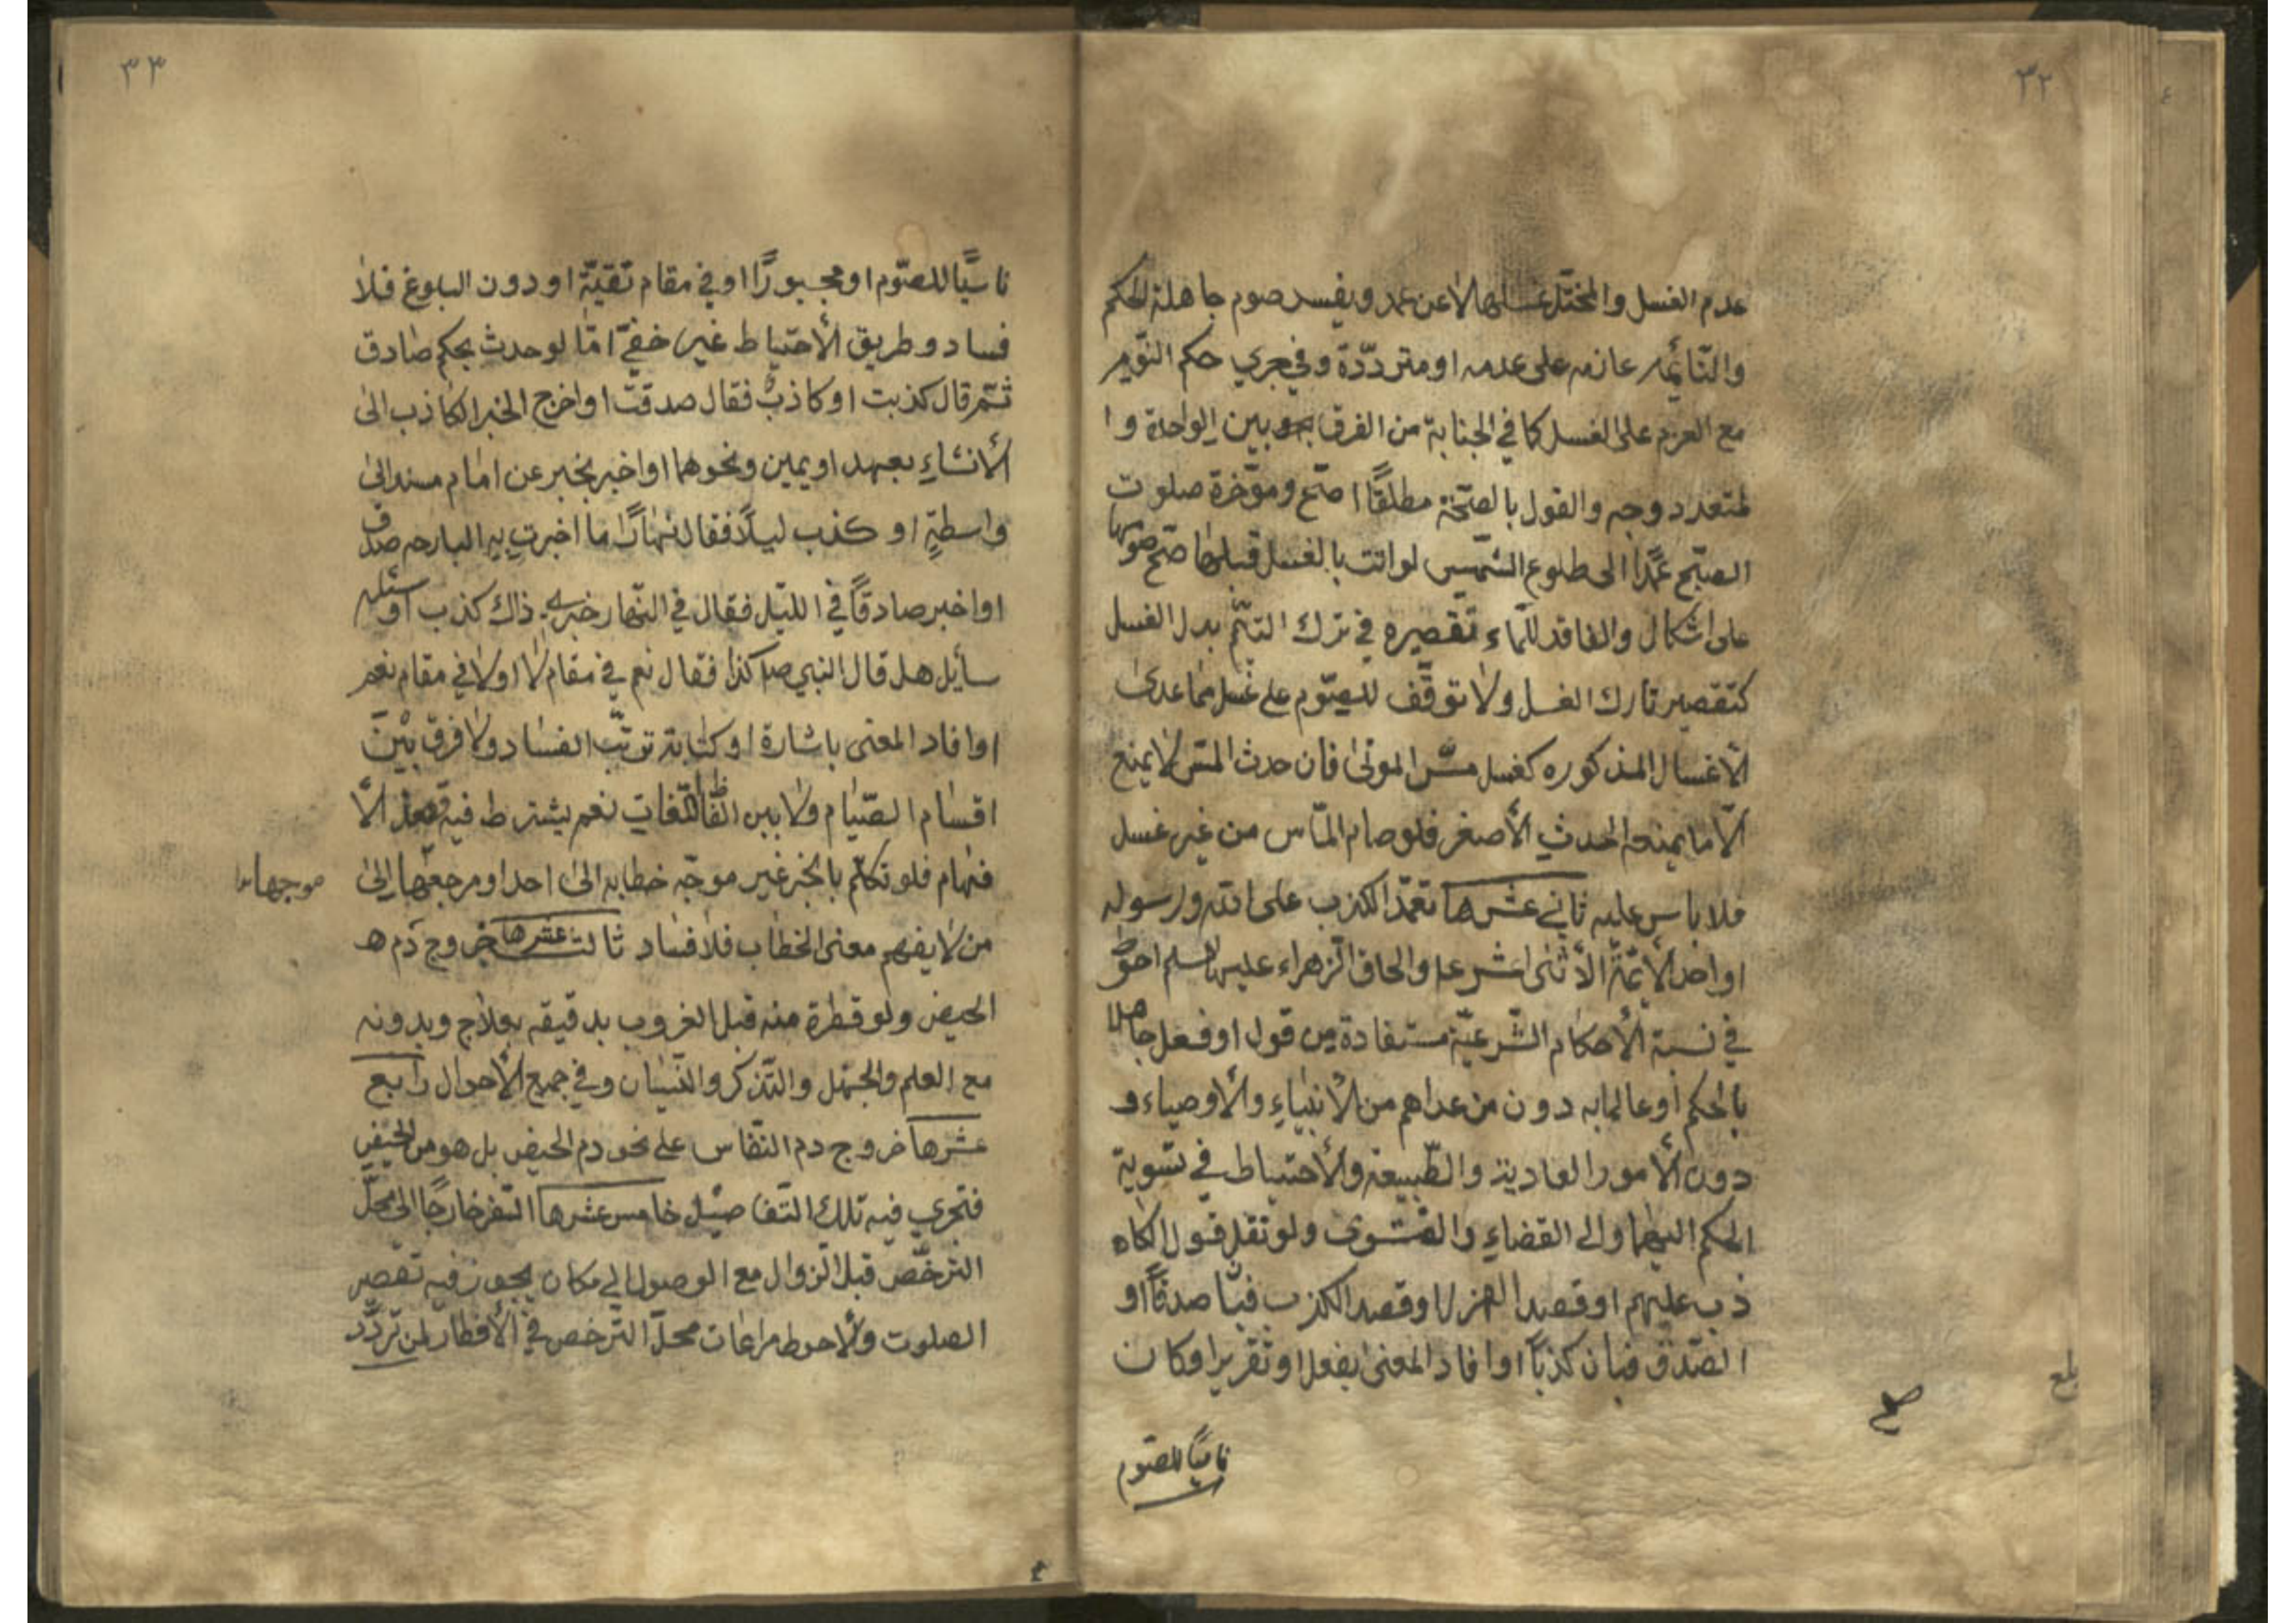 ٣٢
عدم الغسل والمختل غسلها لا عن عمد ويفسد صوم جاهلة الحكم
والنّائمة عازمه على عدمه او متردّدة وفي جري حكم النّوم
مع العزم على الغسل كما في الجنابة من الفرق بين الواحدة وا
لمتعدد وجه والقول بالصّحّة مطلقًا اصّح ومؤخرة صلوت
الصبّح عمدًا الى طلوع الشّمس لو اتت بالغسل قبلها صّح صومها
على اشكال والفاقد للّماء تقصيره في ترك التيّمم بدل الغسل
كتقصير تارك الغسل ولا توقّف للصّوم على غسل مما عدى
الأغسال المذكوره كغسل مسّ الموتى فان حدث المسّ لا يمنع
الّا ما يمنعه الحدث الأصغر فلو صام المّاس من غير غسل
فلا باس عليه ثاني عشرها تعمّد الكذب على الله ورسوله
او احد الأئمّة الأثنى اشر ع والحاق الزهراء عليها السلم احوط
في نسبة الأحكام الشّرعيّة مستفادة من قول او فعل جاهلا
بالحكم او عالما به دون من عداهم من الأنبياء والأوصياء و
دون الأمور العادية والطّبيعة والأحتياط في تسوية
الحكم اليهما والى القضاء والفتوى ولو نقل قول الكاه
ذب عليهم او قصد الهزل او قصد الكذب فبان صدقًا او
الصّدق فبان كذبًا او افاد المعنى بفعل او تقرير او كان
ناسيًا للصّوم
صح
بلغ
٣٣
ناسيًا للصّوم او مجبورًا او في مقام تقيّة او دون البلوغ فلا
فساد وطريق الأحتياط غير خفيّ امّا لو حدث بحكم صادق
ثمّ قال كذبت او كاذب فقال صدقت او اخرج الخبر الكاذب الى
الأنشاء بعهد او يمين ونحوهما او اخبر بخبر عن امام مسند الى
واسطةٍ او كذب ليلًا فقال نهارًا ما اخبرت به البارحه صدق
او اخبر صادقًا في الليّل فقال في النّهار خبري ذاك كذب او سئله
سأيل هل قال النبي ص كذا فقال نعم في مقام لا او لا في مقام نعم
او افاد المعنى باشارة او كتابة ترتّب الفساد ولا فرق بين
اقسام الصّيام ولا بين اللّغات نعم يشترط فيه قصد الأ
فهام فلو تكلّم بالخبر غير موجّه خطابه الى احد او مرجعها الى
موجها
من لا يفهم معنى الخطاب فلا فساد ثالث عشرها خروج دم ه
الحيض ولو قطرة منه قبل الغروب بدقيقه بعلاج وبدونه
مع العلم والجهل والتّذكر والنّسيان وفي جميع الأحوال رابع
عشرها خروج دم النفّاس على نحو دم الحيض بل هو من الحيض
فتجري فيه تلك التّفاصيل خامس عشرها السّفر خارجًا الى محلّ
الترخّص قبل الزّوال مع الوصول الى مكان يجوز فيه تقصير
الصلوت والأحوط مراعات محلّ الترّخص في الأفطار لمن تردّد